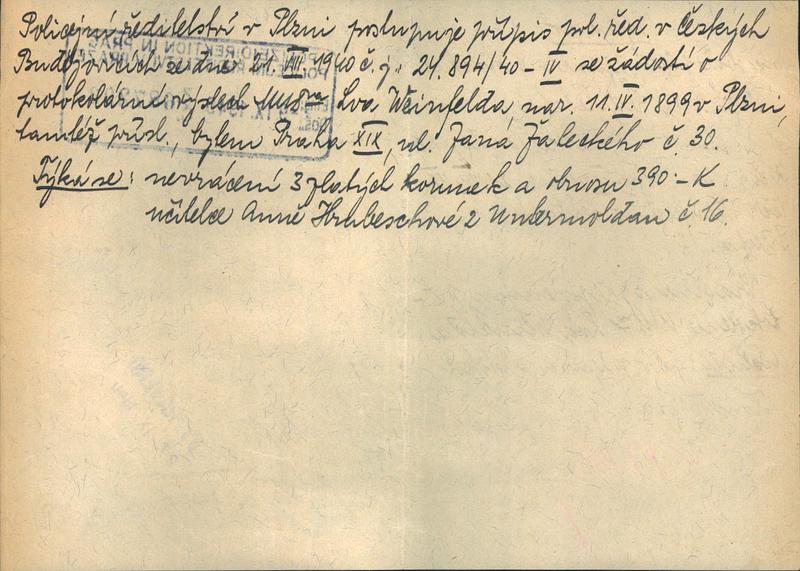 Policejní ředitelství v Plzni postupuje přípis pol. řed. v Českých
Budějovicích ze dne 21. VIII. 1940 č. j. 24.894/40 - IV se žádostí o
protokolární výslech MUDra Lva Weinfelda, nar. 11. IV. 1899 v Plzni,
tamtéž přísl., bytem Praha XIX, ul. Jana Žaleckého č. 30.
Týká se: nevrácení 3 zlatých korunek a obnosu 390.- K
učitelce Anně Hrubeschové z Untermoldau č. 16.